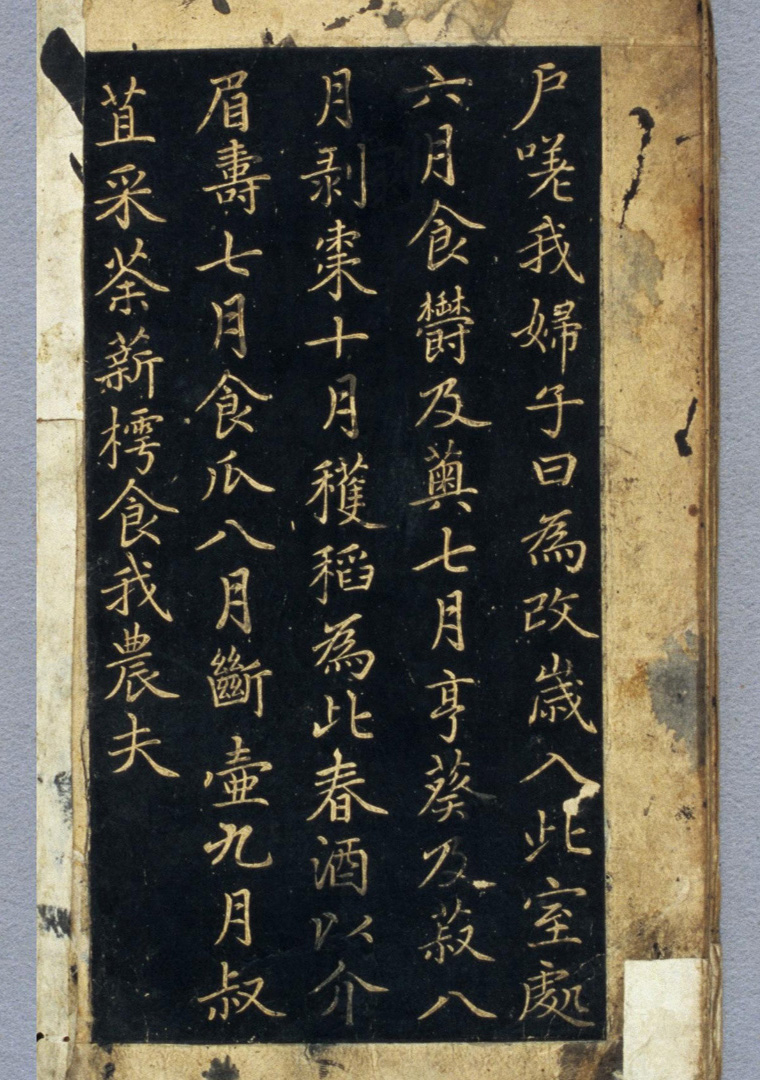 戶嗟我婦子曰為改歲入此室處
六月食鬱及薁七月亨葵及菽八
月剥棗十月穫稻為此春酒以介
眉壽七月食瓜八月斷壷九月叔
苴采荼薪樗食我農夫